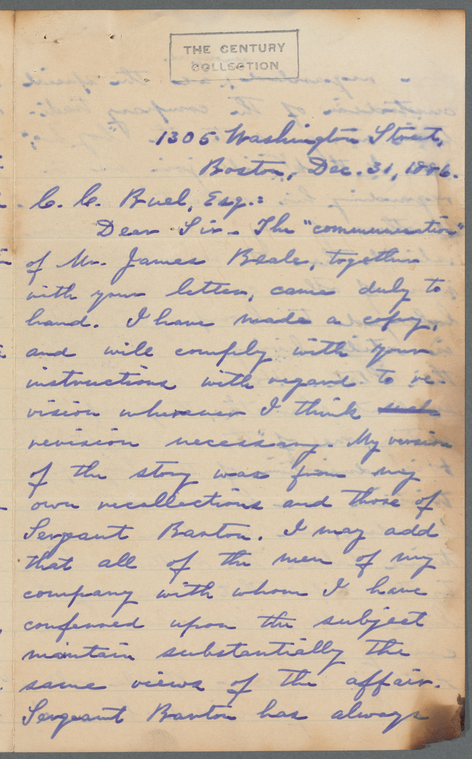 THE CENTURY
COLLECTION
1305 Washington Street,
Boston, Dec. 31, 1886.
C. C. Buel, Esq.:
Dear Sir - The "communication"
of Mr. James Beale, together
with your letter, came duly to
hand. I have made a copy,
and will comply with your
instructions with regard to re-
vision wherever I think such
revision necessary. My version
of the story was from my
own recollections and those of
Sergeant Barton. I may add
that all of the men of my
company with whom I have
conferred upon the subject
maintain substantially the
same views of the affair.
Sergeant Barton has always